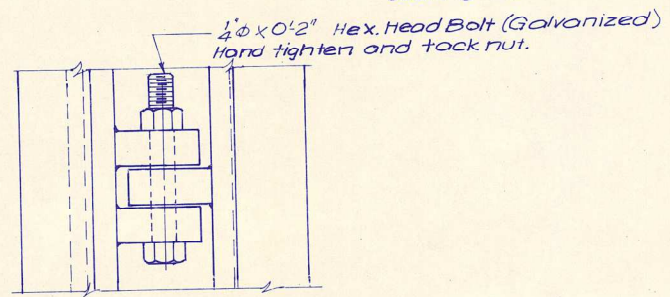 1/4"ϕ x 0'-2" Hex. Head Bolt (Galvanized)
Hand tighten and tack nut.